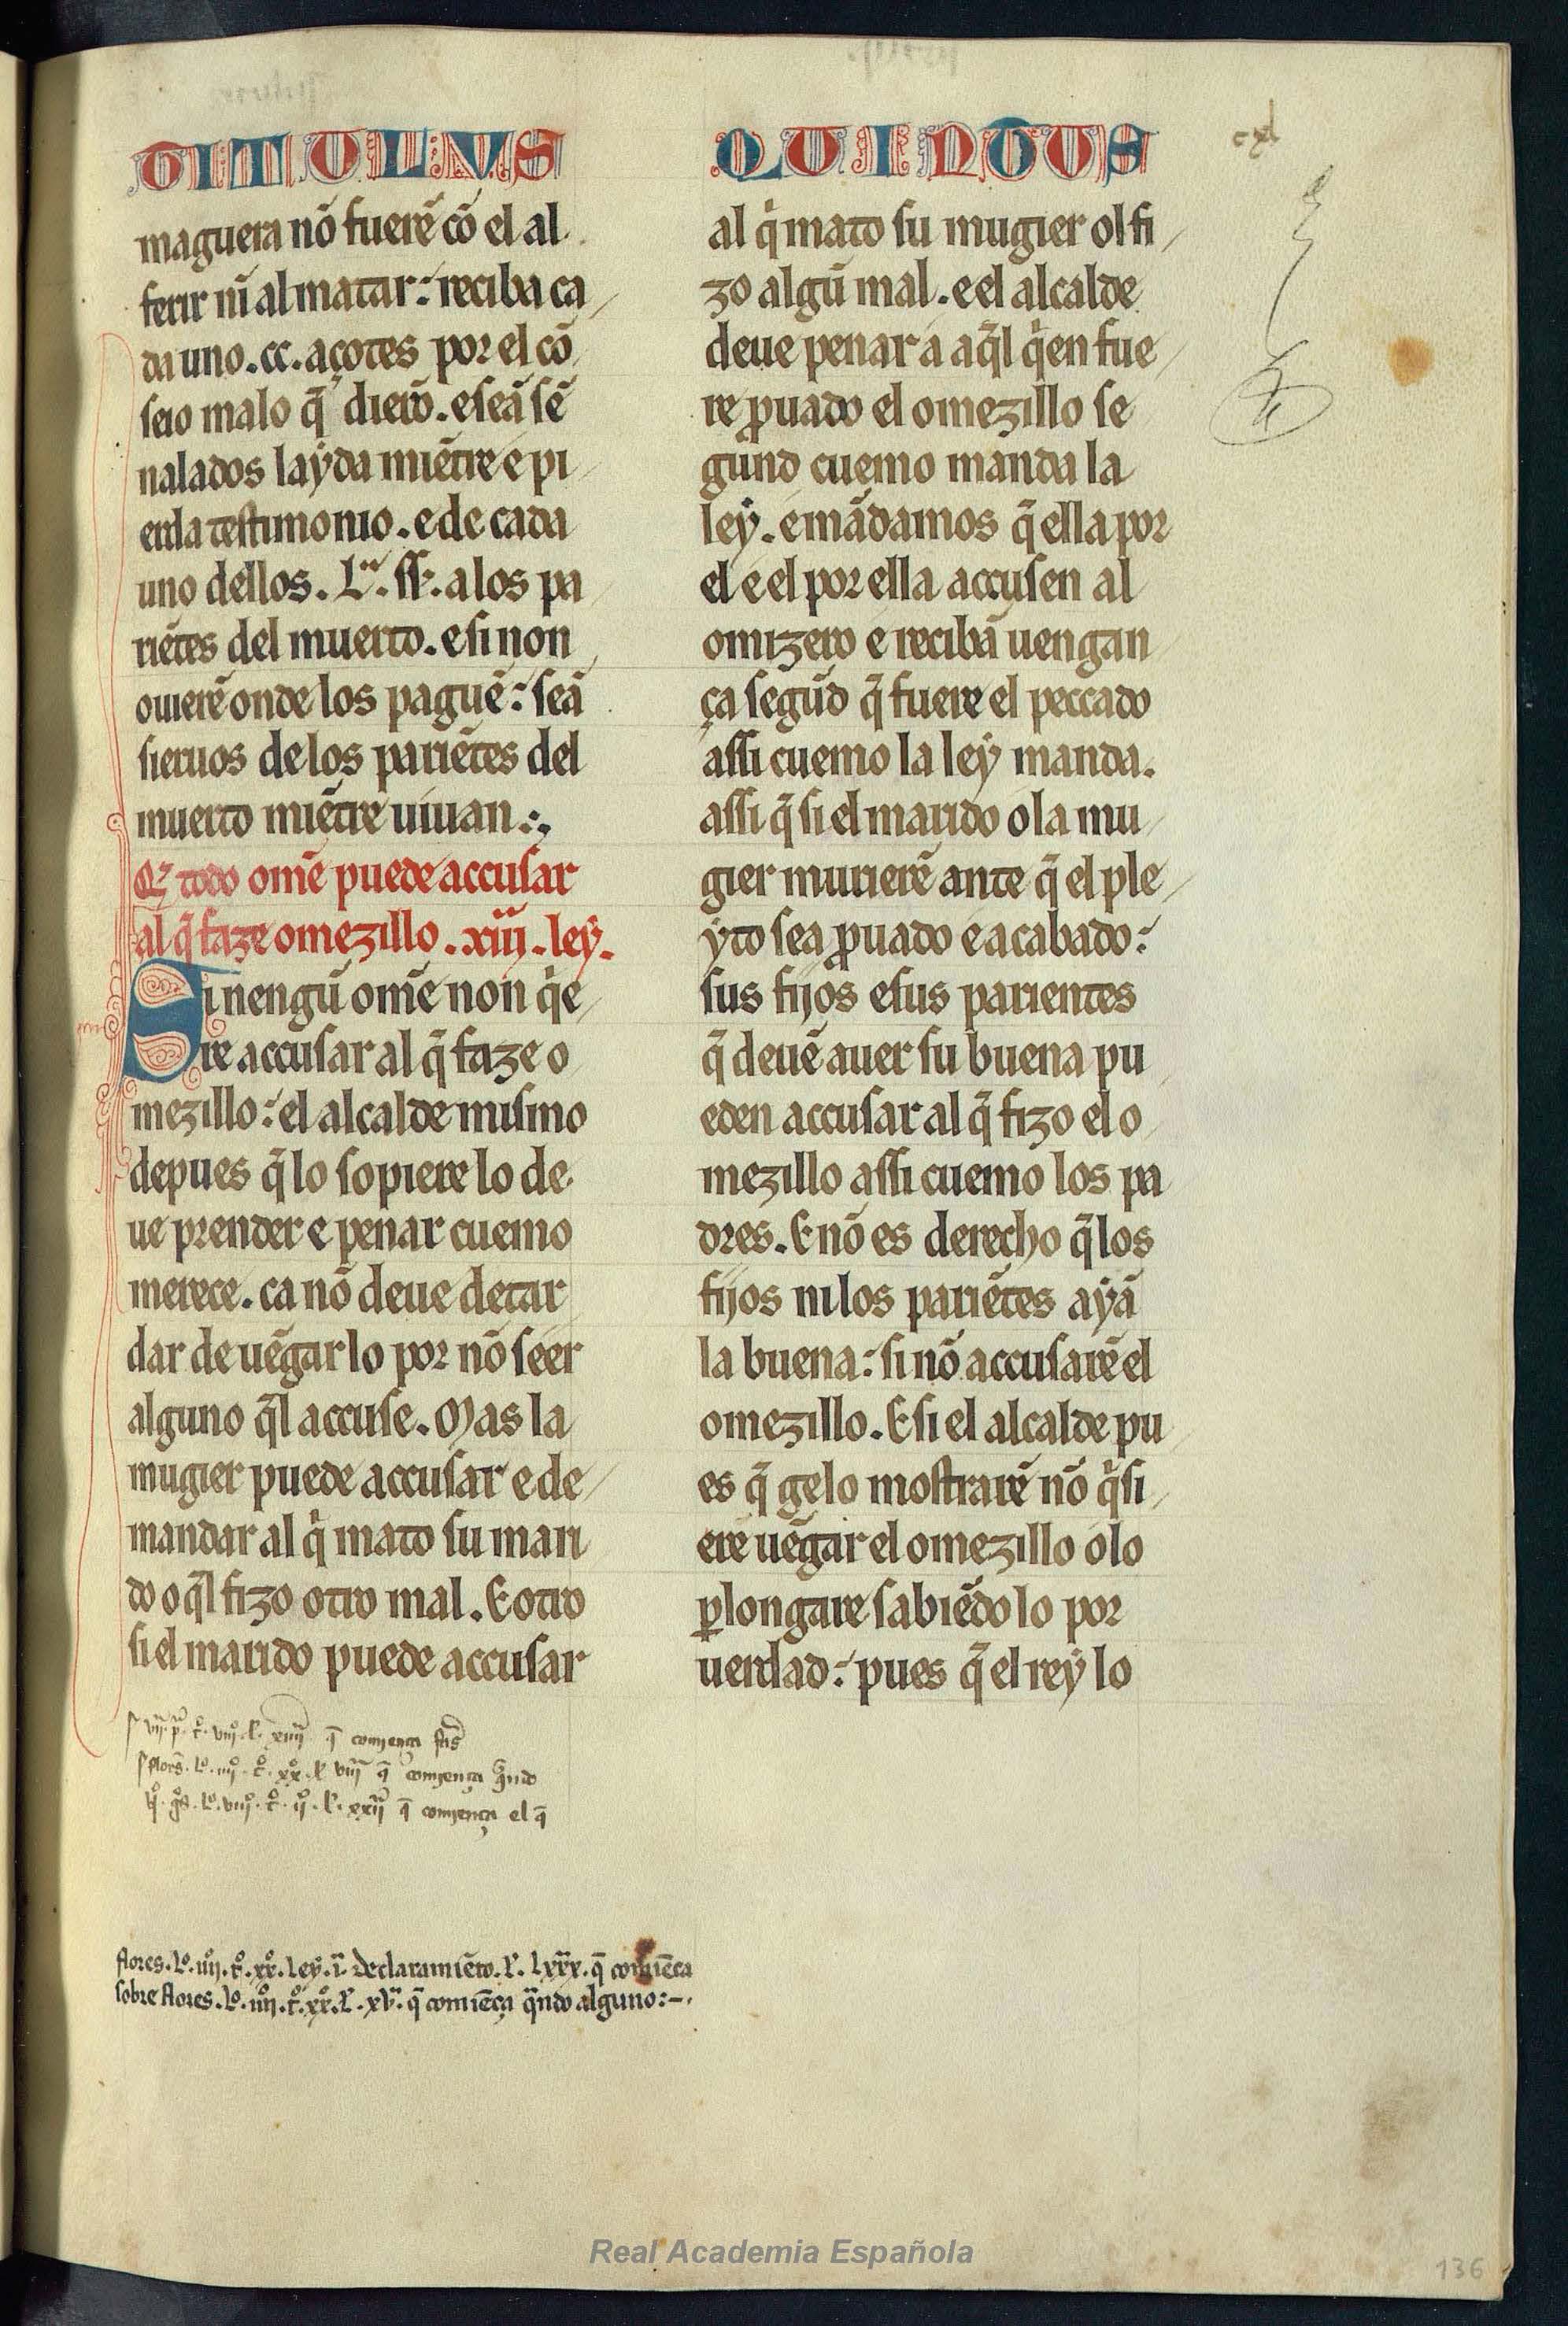 TITULVS QUINTUS
cxl
maguera nõ fuerẽ cõ el al
ferir nĩ al matar: reciba ca
da uno .cc. açotes por el cõ
seio malo q̃ dierõ. e seã sẽ
nalados layda miẽtre e pi
erda testimonio. e de cada
uno dellos. L.ª ss̃. a los pa
riẽtes del muerto. e si non
ouierẽ onde los paguẽ: seã
sieruos de los pariẽtes del
muerto miẽtre uiuan.
Q̃ todo om̃e puede accusar
al q̃ faze omezillo .xiiij. ley.
Si nengũ om̃e non q̃e
re accusar al q̃ faze o
mezillo: el alcalde mismo
depues q̃ lo sopiere lo de
ue prender e penar cuemo
merece. ca nõ deue de tar
dar de uẽgar lo por nõ seer
alguno q̃l accuse. Mas la
mugier puede accusar e de
mandar al q̃ mato su mari
do o q̃l fizo otro mal. E otro
si el marido puede accusar
al q̃ mato su mugier ol fi
zo algũ mal. e el alcalde
deue penar a aq̃l q̃en fue
re prouado el omezillo se
gund cuemo manda la
ley. e mãdamos q̃ ella por
el e el por ella accusen al
omizero e recibã uengan
ça segũd q̃ fuere el peccado
assi cuemo la ley manda.
assi q̃ si el marido o la mu
gier murierẽ ante q̃ el ple
yto sea prouado e acabado:
sus fijos e sus parientes
q̃ deuẽ auer su buena pu
eden accusar al q̃ fizo el o
mezillo assi cuemo los pa
dres. E nõ es derecho q̃ los
fijos ni los pariẽtes ayã
la buena: si nõ accusarẽ el
omezillo. E si el alcalde pu
es q̃ gelo mostrarẽ nõ q̃si
ere uẽgar el omezillo o lo
ꝑlongare sabiẽdo lo por
uerdad: pues q̃ el rey lo
vijª. pª. tº. viijº. l. xiiij q̃ comença
flores. lº. iiijº. tº. xxº. l. viijª q̃ comença q̃ndo
lº. viijº. tº. ijº. l. xxijª q̃ comença el q̃
flores. lº. iiijº. tº. xxº. ley. iª. declaramiẽto. l. lxxx. q̃ comiẽça
sobre flores. lº. iiijº. tº. xxº. l. xvª. q̃ comiẽça q̃ndo alguno:-.
Real Academia Española
136